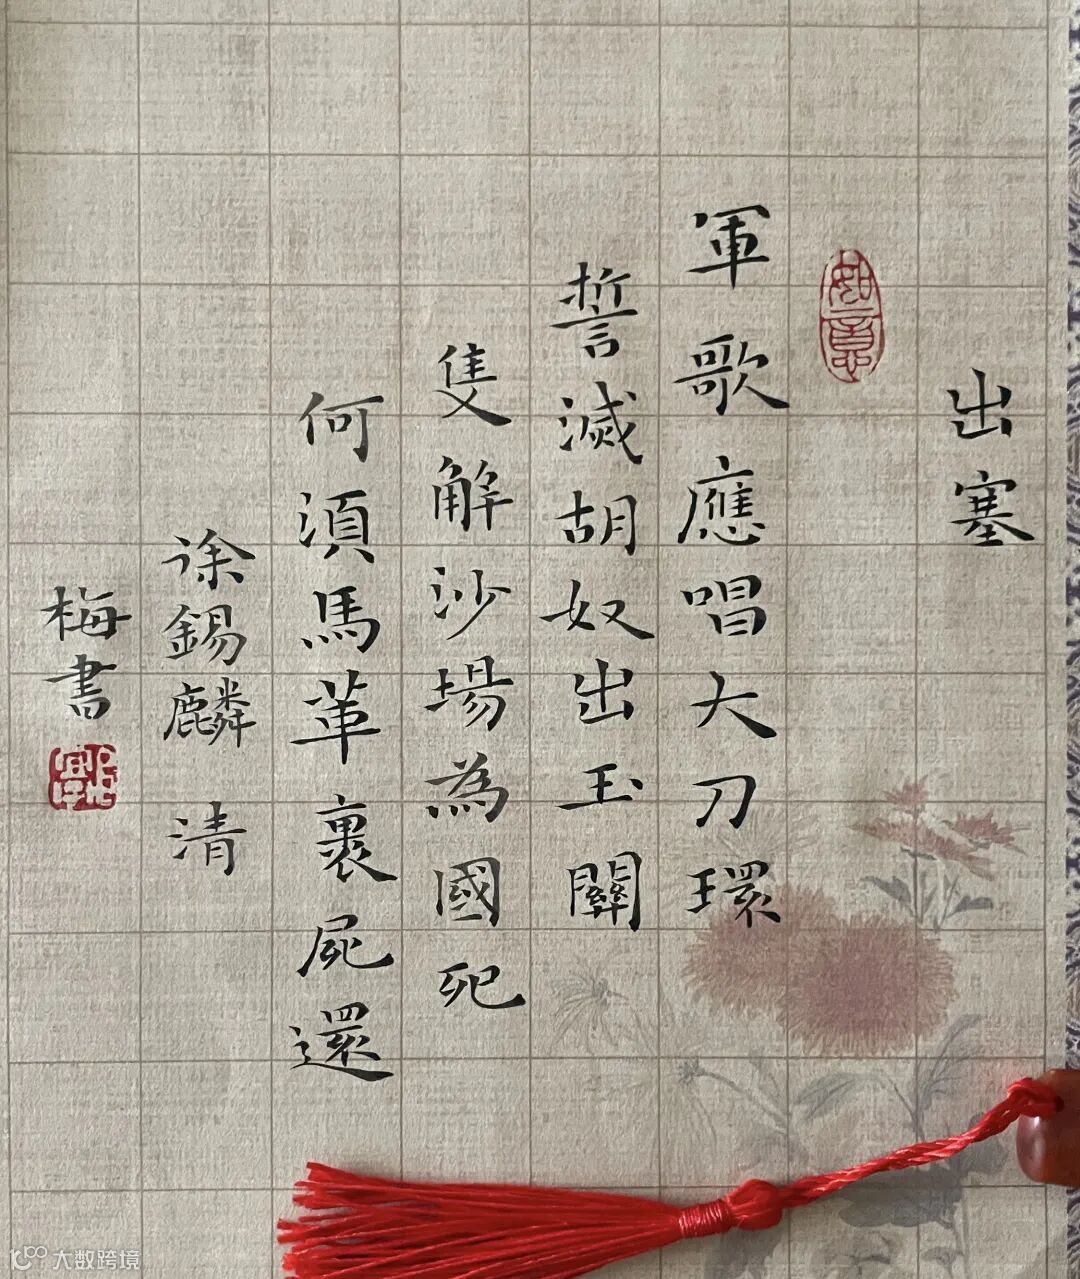 出塞
如意
軍歌應唱大刀環
誓滅胡奴出玉關
隻解沙場為國死
何須馬革裹屍還
徐錫麟 清
梅書
大数跨境